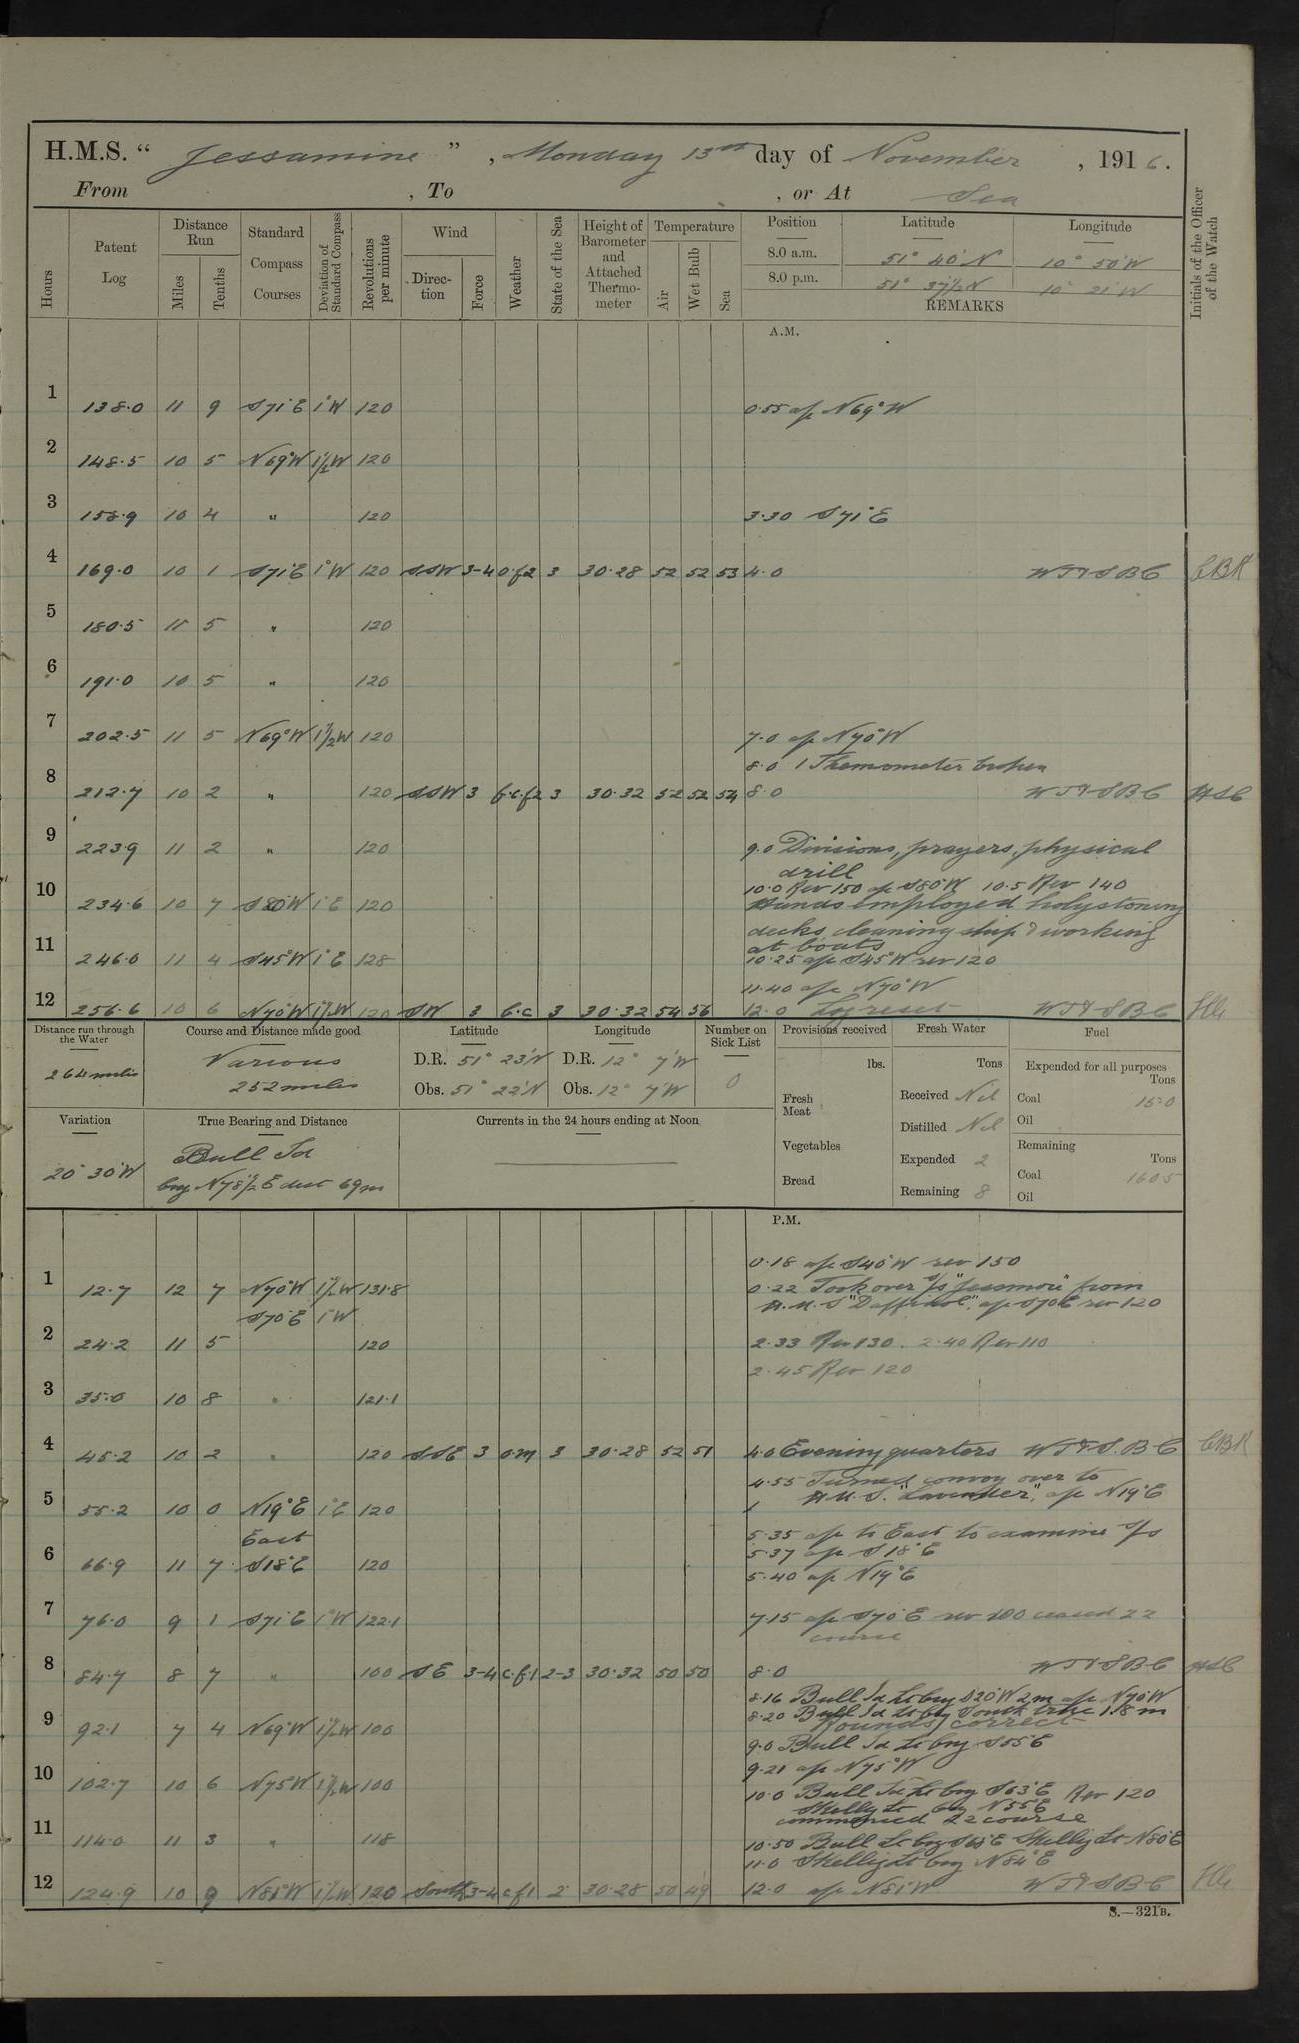 H.M.S. "Jessamine", Monday 13th day of November, 1916.
From , To , or At Sea
Hours
Patent Log
Distance Run
Miles
Tenths
Standard Compass Courses
Deviation of Standard Compass
Revolutions per minute
Wind
Direction
Force
Weather
State of the Sea
Height of Barometer and Attached Thermometer
Temperature
Air
Wet Bulb
Sea
Position Latitude Longitude
8.0 a.m. 51° 40' N 10° 50' W
8.0 p.m. 51° 37½ N 10° 21' W
REMARKS
Initials of the Officer of the Watch
A.M.
1 138.0 11 9 S71°E 1°W 120 0.55 a/c N69°W
2 148.5 10 5 N69°W 1½W 120
3 158.9 10 4 " 120 3.30 S71°E
4 169.0 10 1 S71°E 1°W 120 SSW 3-4 o.f.2 3 30.28 52 52 53 4.0 WT&SBC CBR
5 180.5 11 5 " 120
6 191.0 10 5 " 120
7 202.5 11 5 N69°W 1½W 120 7.0 a/c N70°W
8.0 1 Thermometer broken
8 212.7 10 2 " 120 SSW 3 b.c.f2 3 30.32 52 52 54 8.0 WT&SBC
9 223.9 11 2 " 120 9.0 Divisions, prayers, physical
drill
10.0 Rev 150 a/c S80°W 10.5 Rev 140
10 234.6 10 7 S80°W 1°E 120 Hands employed holystoning
decks cleaning ship & working
at boats
11 246.0 11 4 S45°W 1°E 128 10.25 a/c S45°W rev 120
11.40 a/c N70°W
12 256.6 10 6 N70°W 1½W 120 SW 3 b.c 3 30.32 54 56 12.0 Log reset WT&SBC
Distance run through the Water
264 miles
Course and Distance made good
Various
252 miles
Latitude
D.R. 51° 23'N
Obs. 51° 22'N
Longitude
D.R. 12° 7'W
Obs. 12° 7'W
Number on Sick List
0
Provisions received
lbs.
Fresh Meat
Vegetables
Bread
Fresh Water
Tons
Received Nil
Distilled Nil
Expended 2
Remaining 8
Fuel
Expended for all purposes
Tons
Coal 15.0
Oil
Remaining
Tons
Coal 160.5
Oil
Variation
20° 30'W
True Bearing and Distance
Bull Id
brg N78½°E dist 69m
Currents in the 24 hours ending at Noon
P.M.
0.18 a/c S40°W rev 150
1 12.7 12 7 N70°W 1½W 131.8 0.22 Took over S/S from
S70°E 1°W H.M.S "Daffodil", a/c S70E rev 120
2 24.2 11 5 120 2.33 Rev 130. 2.40 Rev 110
2.45 Rev 120
3 35.0 10 8 " 121.1
4 45.2 10 2 " 120 SSE 3 o.m 3 30.28 52 51 4.0 Evening quarters WT&S.B.C CBR
4.55 Turned convoy over to
5 55.2 10 0 N19°E 1°E 120 H.M.S. "Lavender", a/c N19°E
East 5.35 a/c to East to examine S/s
5.37 a/c S18°E
6 66.9 11 7 S18°E 120 5.40 a/c N19°E
7 76.0 9 1 S71°E 1°W 122.1 7.15 a/c S70°E rev 100 ceased 22
course
8 84.7 8 7 " 100 SE 3-4 c.f.1 2-3 30.32 50 50 8.0 WT&SBC
8.16 Bull Id Lt brg S20°W 2m a/c N70°W
8.20 Bull Id Lt brg South true 1.8 m
Rounds correct
9 92.1 7 4 N69°W 1½W 100 9.0 Bull Id Lt brg S55°E
9.21 a/c N75°W
10 102.7 10 6 N75°W 1½W 100 10.0 Bull Id Lt brg S63°E Rev 120
Skelly Lt brg N55E
commenced 22 course
11 114.0 11 3 " 118 10.50 Bull Lt brg S65°E Skellig Lt N80°E
11.0 Skellig Lt brg N84°E
12 124.9 10 9 N81°W 1½W 120 South 3-4 c.f.1 2 30.28 50 49 12.0 a/c N81°W WT&SBC
S.—321B.